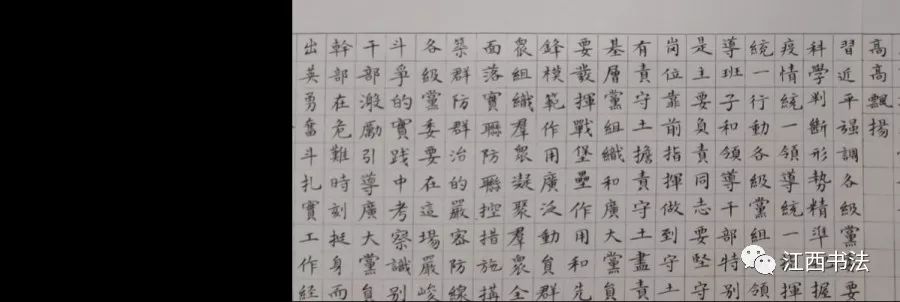 高高飄揚
習近平强調各級黨要
科學判斷形勢精準握
疫情統一領導統一揮
統一行動各級黨組領
導班子和領導干部特別
是主要負責同志要堅守
崗位靠前指揮做到守土
有責守土擔責守土盡責
基層黨組織和廣大黨員
要發揮戰堡壘作用和先
鋒模範作用廣泛動員群
衆組織羣衆凝聚羣衆全
面落實聯防聯控措施搆
築群防群治的嚴密防線
各級黨委要在這場嚴峻
斗爭的實踐中考察識別
干部激勵引導廣大黨員
幹部在危難時刻挺身而
出英勇奮斗扎實工作經
江西书法